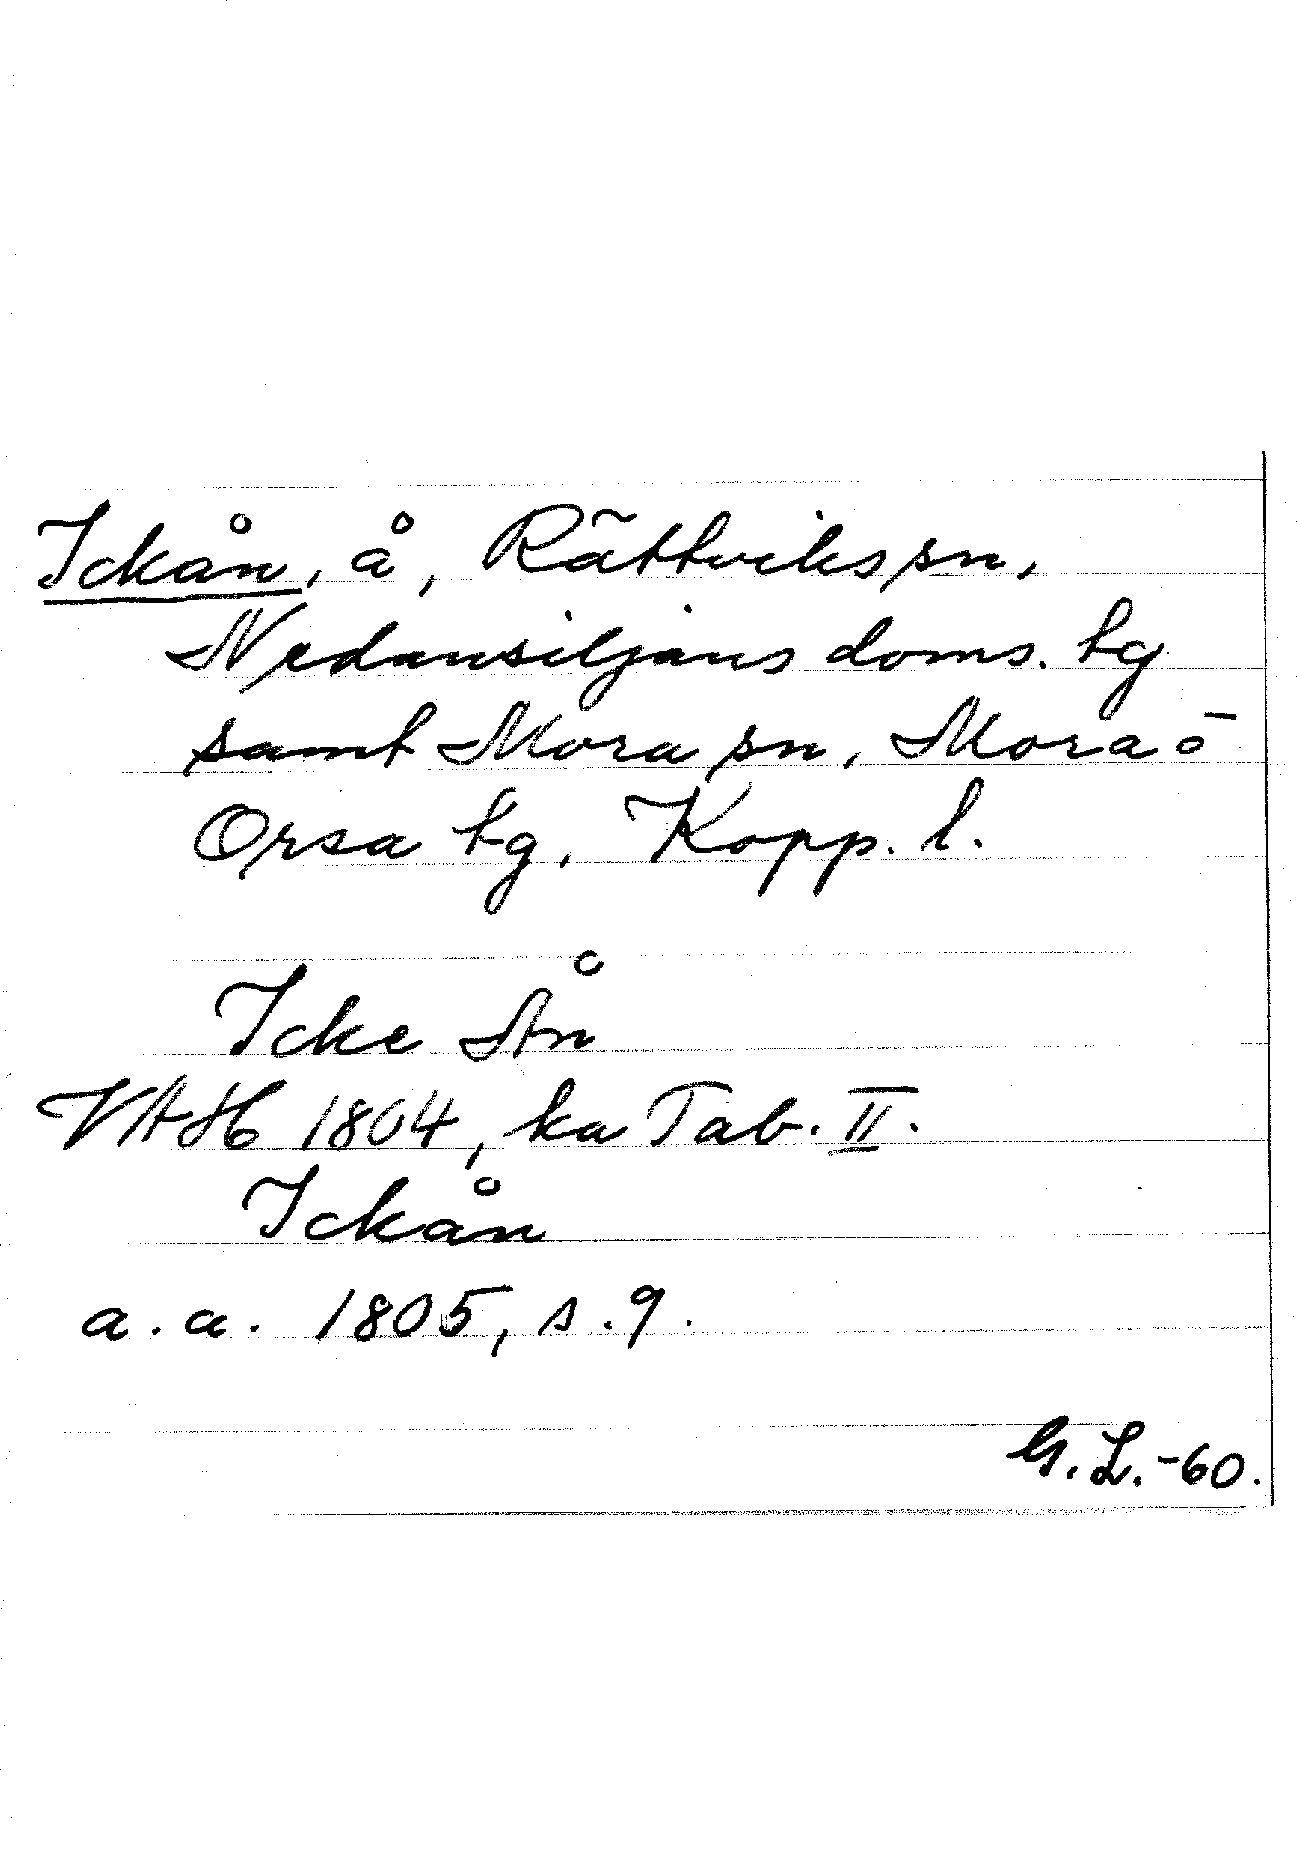 Ickån, å, Rättviks sn,
Nedansiljans doms. tg
samt Mora sn, Mora o
Orsa tg, Kopp. l.
Icke Ån
VAH 1804, ka Tab. II.
Ickån
a. a. 1805, s. 9.
G. L. -60.